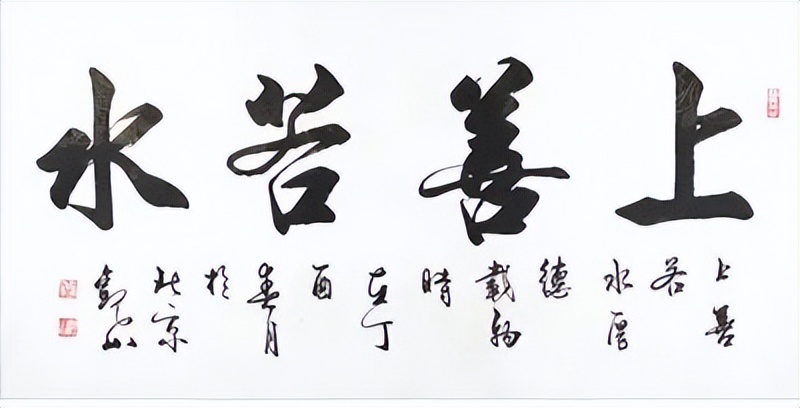 上善若水
上善
若
水厚
德
載物
時
在丁
酉
春月
於
北京